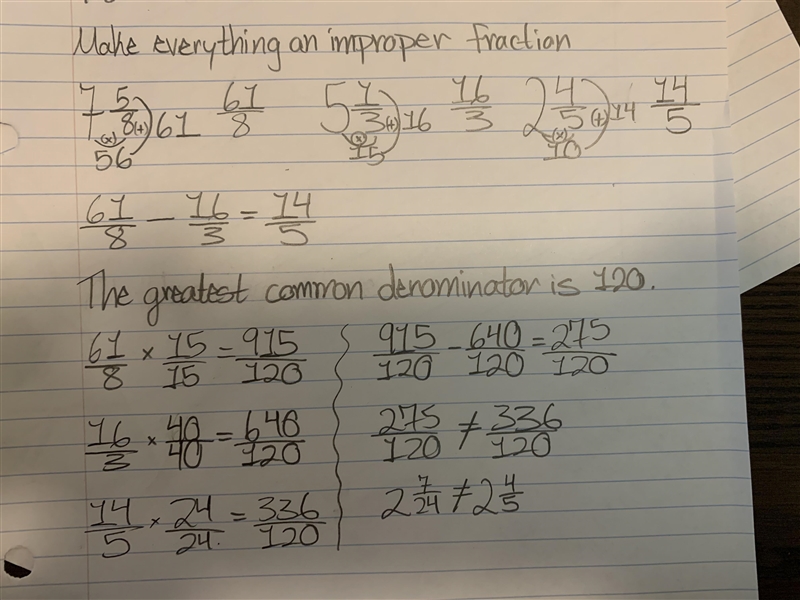 Make everything an improper fraction
7 5/8 (+) 61 61/8 5 1/3 (+) 16 16/3 2 4/5 (+) 14 14/5
(x) 56 (x) 15 (x) 10
61/8 - 16/3 = 14/5
The greatest common denominator is 120.
61/8 × 15/15 = 915/120
16/3 × 40/40 = 640/120
14/5 × 24/24 = 336/120
915/120 - 640/120 = 275/120
275/120 ≠ 336/120
2 7/24 ≠ 2 4/5